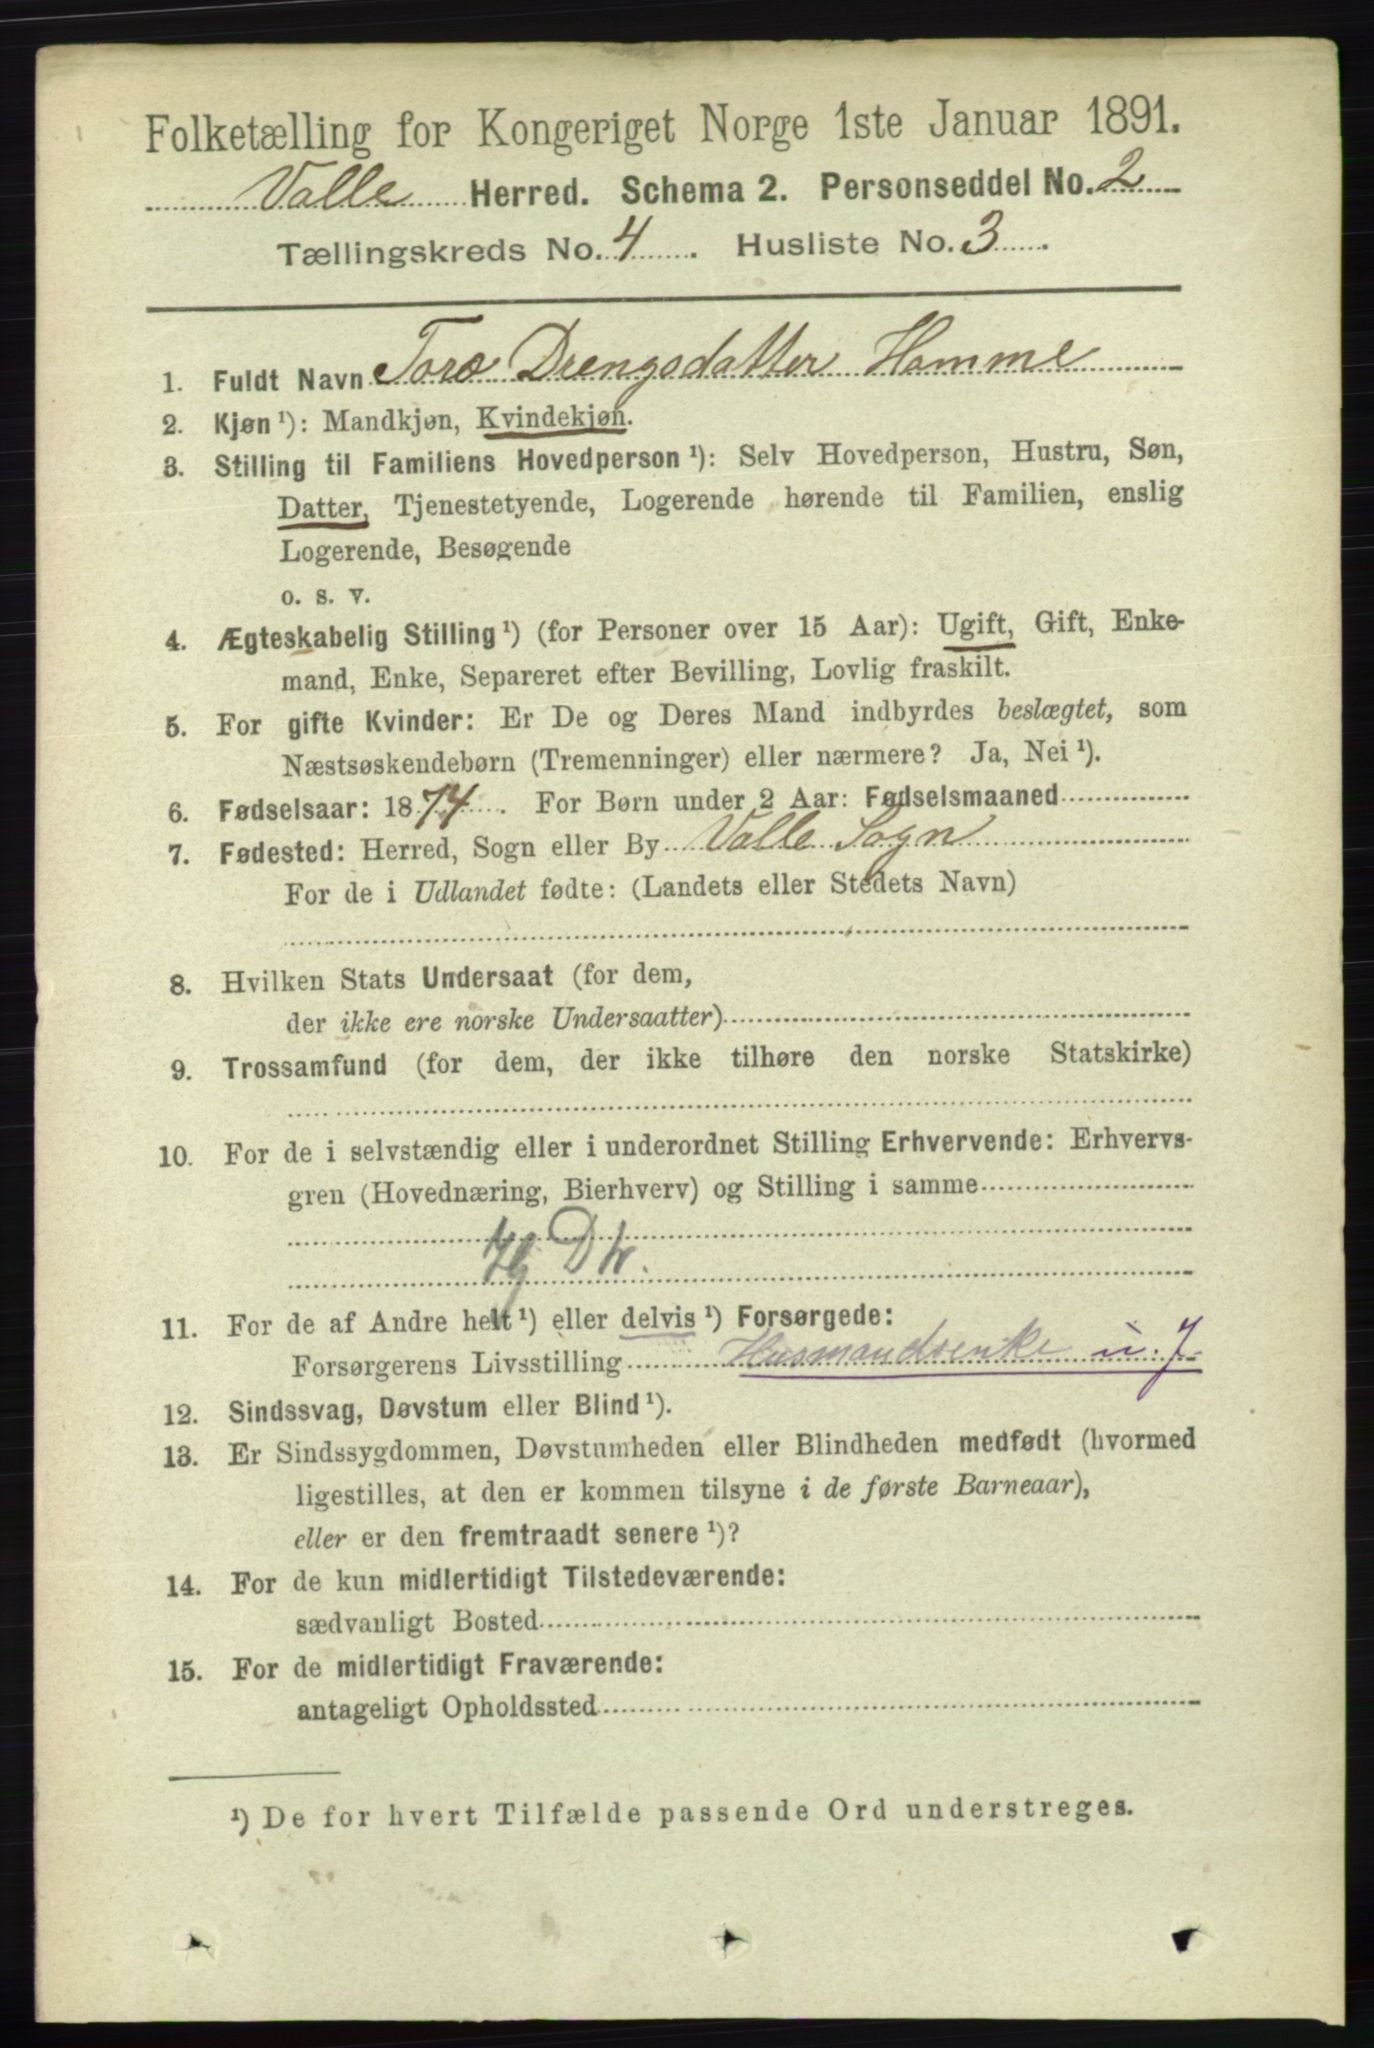 Folketælling for Kongeriget Norge 1ste Januar 1891.
Valle Herred. Schema 2. Personseddel No. 2
Tællingskreds No. 4. Husliste No. 3.
1. Fuldt Navn Toro Drengsdatter Homme
2. Kjøn ¹): Mandkjøn, Kvindekjøn.
3. Stilling til Familiens Hovedperson ¹): Selv Hovedperson, Hustru, Søn,
Datter, Tjenestetyende, Logerende hørende til Familien, enslig
Logerende, Besøgende
o. s. v.
4. Ægteskabelig Stilling ¹) (for Personer over 15 Aar): Ugift, Gift, Enke-
mand, Enke, Separeret efter Bevilling, Lovlig fraskilt.
5. For gifte Kvinder: Er De og Deres Mand indbyrdes beslægtet, som
Næstsøskendebørn (Tremenninger) eller nærmere? Ja, Nei ¹).
6. Fødselsaar: 1874. For Børn under 2 Aar: Fødselsmaaned
7. Fødested: Herred, Sogn eller By Valle Sogn
For de i Udlandet fødte: (Landets eller Stedets Navn)
8. Hvilken Stats Undersaat (for dem,
der ikke ere norske Undersaatter)
9. Trossamfund (for dem, der ikke tilhøre den norske Statskirke)
10. For de i selvstændig eller i underordnet Stilling Erhvervende: Erhvervs-
gren (Hovednæring, Bierhverv) og Stilling i samme
11. For de af Andre helt ¹) eller delvis ¹) Forsørgede:
Forsørgerens Livsstilling Husmandsenke u. J.
12. Sindssvag, Døvstum eller Blind ¹).
13. Er Sindssygdommen, Døvstumheden eller Blindheden medfødt (hvormed
ligestilles, at den er kommen tilsyne i de første Barneaar),
eller er den fremtraadt senere ¹)?
14. For de kun midlertidigt Tilstedeværende:
sædvanligt Bosted
15. For de midlertidigt Fraværende:
antageligt Opholdssted
¹) De for hvert Tilfælde passende Ord understreges.